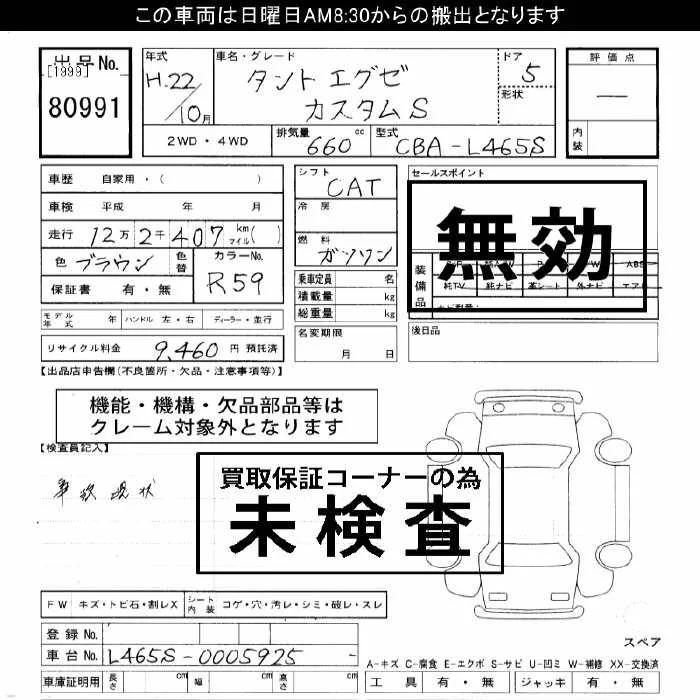 この車両は日曜日AM8:30からの搬出となります
出品No.
[1999]
80991
年式
H.22/10月
車名・グレード
タント エグゼ
カスタム S
ドア
5
形状
評価点
—
内装
2WD・4WD
排気量
660 cc
型式
CBA-L465S
車歴 自家用・( )
車検 平成 年 月
走行 12万2千407 km マイル( )
色 ブラウン 色替
カラーNo.
R59
保証書 有・無
シフト
CAT
冷房
燃料
ガソリン
乗車定員 名
積載量 kg
総重量 kg
セールスポイント
無効
装備品
ABS
純TV 純ナビ 革シート 外ナビ エアB
モデル年式 年 ハンドル 左・右 ディーラー・並行
名変期限
月 日
後日品
リサイクル料金 9,460 円 預託済
【出品店申告欄(不良箇所・欠品・注意事項等)】
機能・機構・欠品部品等は
クレーム対象外となります
【検査員記入】
事故現状
買取保証コーナーの為
未検査
FW キズ・トビ石・割レX シート内装 コゲ・穴・汚レ・シミ・破レ・スレ
登録No.
車台No. L465S-0005925
スペア
A-キズ C-腐食 E-エクボ S-サビ U-凹ミ W-補修 XX-交換済
車庫証明用 長さ cm 幅 cm 高さ cm
工具 有・無 ジャッキ 有・無